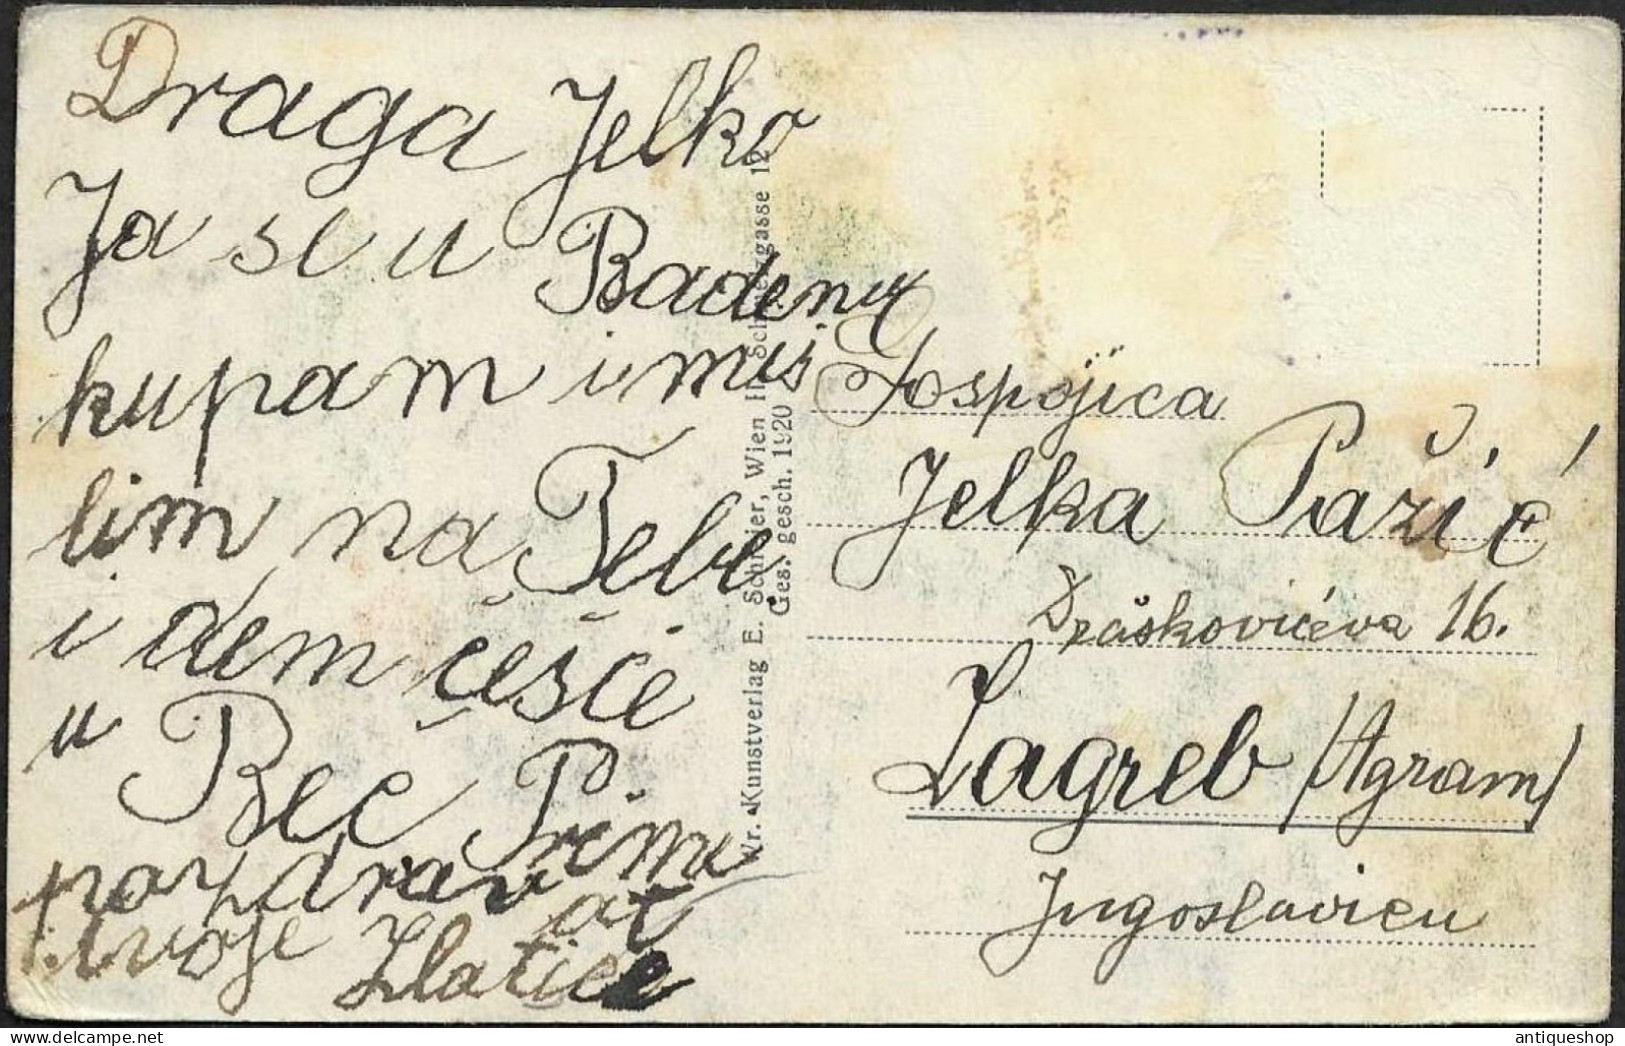 Draga Jelko
Ja se u Badenu
kupam i mis
lim na Tebe
i idem češće
u Bec Prima
pozdrav od
tvoje Zlatice
Nr. Kunstverlag E. Schreier, Wien III. 12
Ges. gesch. 1920
Gospojica
Jelka Pažić
Draškovićeva 16.
Zagreb /Agram/
Jugoslavien
antiqueshop